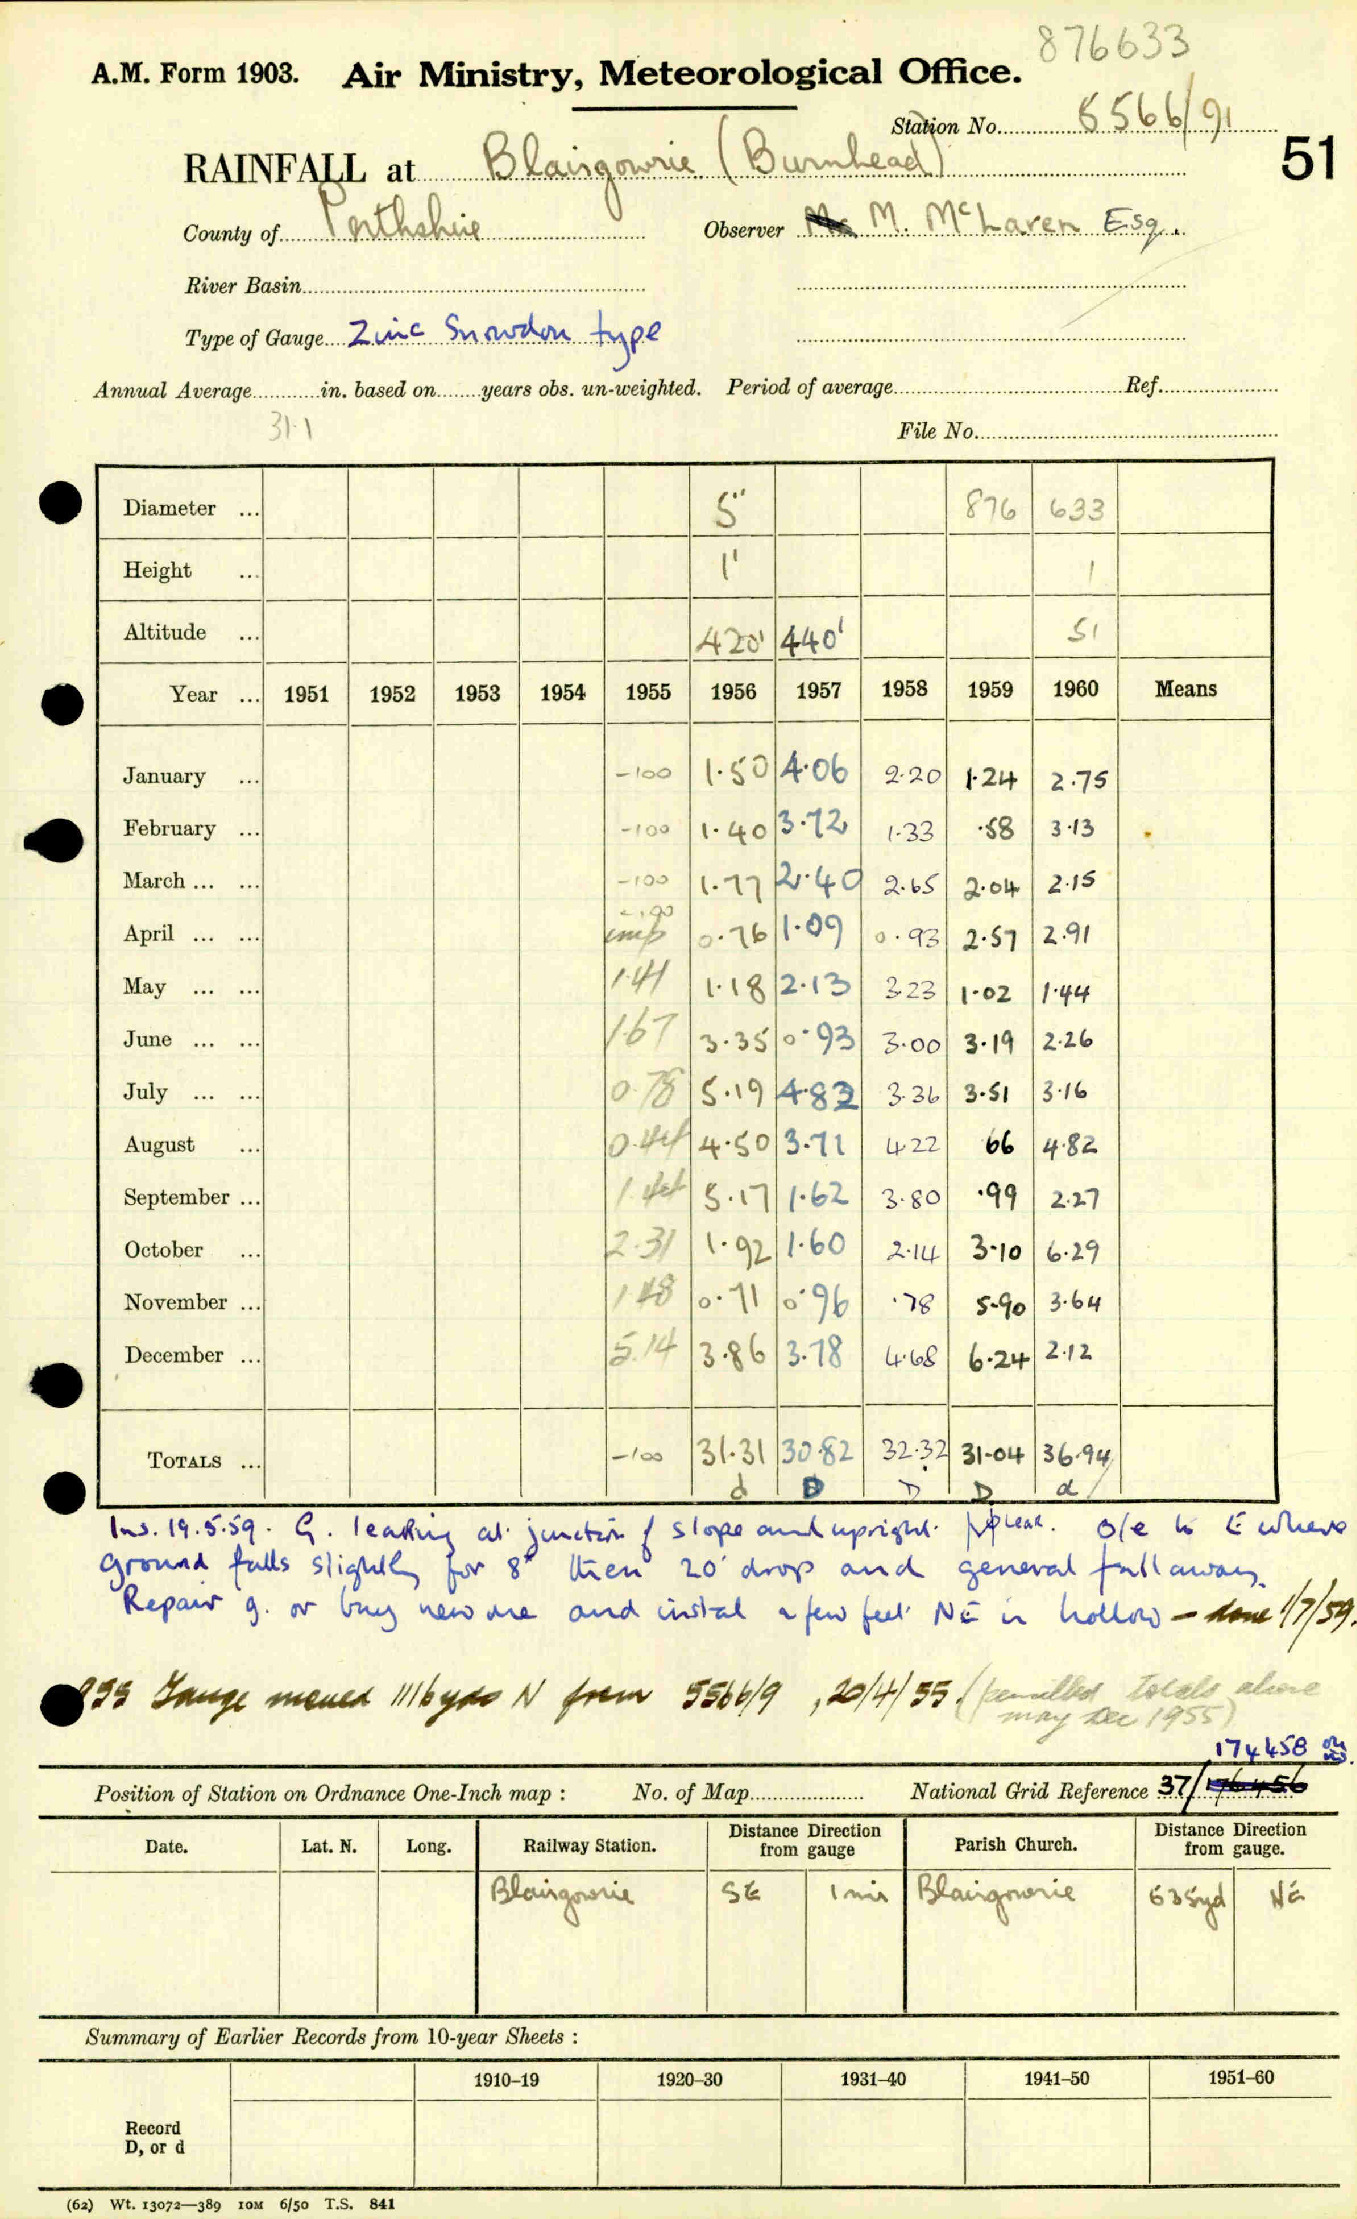 876633
A.M. Form 1903. Air Ministry, Meteorological Office.
Station No. 5566/91
51
RAINFALL at Blairgowrie (Burnhead)
County of Perthshire Observer M. McLaren Esq.
River Basin
Type of Gauge Zinc Snowdon type
Annual Average in. based on years obs. un-weighted. Period of average Ref.
31.1
File No.
Diameter ... 5" 876 633
Height ... 1' 1
Altitude ... 420' 440' 51
Year ... 1951 1952 1953 1954 1955 1956 1957 1958 1959 1960 Means
January ... -100 1.50 4.06 2.20 1.24 2.75
February ... -100 1.40 3.72 1.33 .58 3.13
March ... ... -100 1.77 2.40 2.65 2.04 2.15
-100
April ... ... imp 0.76 1.09 0.93 2.57 2.91
May ... ... 1.41 1.18 2.13 3.23 1.02 1.44
June ... ... 1.67 3.35 0.93 3.00 3.19 2.26
July ... ... 0.78 5.19 4.82 3.36 3.51 3.16
August ... 0.44 4.50 3.71 4.22 66 4.82
September ... 1.44 5.17 1.62 3.80 .99 2.27
October ... 2.31 1.92 1.60 2.14 3.10 6.29
November ... 1.48 0.71 0.96 .78 5.90 3.64
December ... 5.14 3.86 3.78 4.68 6.24 2.12
TOTALS ... -100 31.31 30.82 32.32 31.04 36.94
d D D D d
Ins. 19.5.59. G. leaking at junction of slope and upright. o/e to E where
ground falls slightly for 8' then 20' drop and general fall away.
Repair g. or buy new one and instal a few feet NE in hollow - done 1/7/59.
1955 Gauge moved 1116 yds N from 5566/9, 20/4/55. (pencilled totals above
may Dec 1955)
174458
Position of Station on Ordnance One-Inch map : No. of Map National Grid Reference 37/176456
Date. Lat. N. Long. Railway Station. Distance Direction from gauge Parish Church. Distance Direction from gauge.
Blairgowrie SE 1 mi Blairgowrie 635yd NE
Summary of Earlier Records from 10-year Sheets :
1910–19 1920–30 1931–40 1941–50 1951–60
Record
D, or d
(62) Wt. 13072—389 10M 6/50 T.S. 841